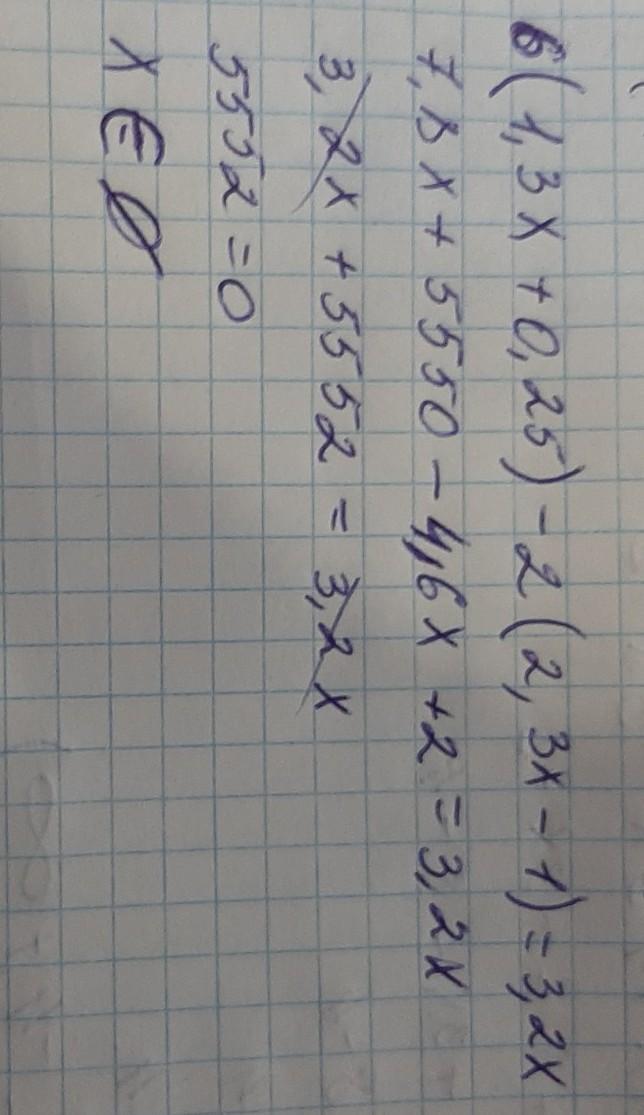 6(1,3x+0,25)-2(2,3x-1)=3,2x
7,8x+5550-4,6x+2=3,2x
3,2x+5552=3,2x
5552=0
x∈∅